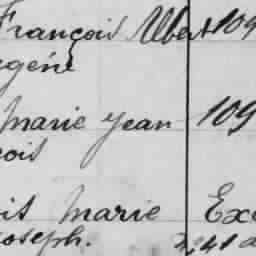 François Albert 109
gène
Marie Jean 109
çois
Marie Ex
Joseph.